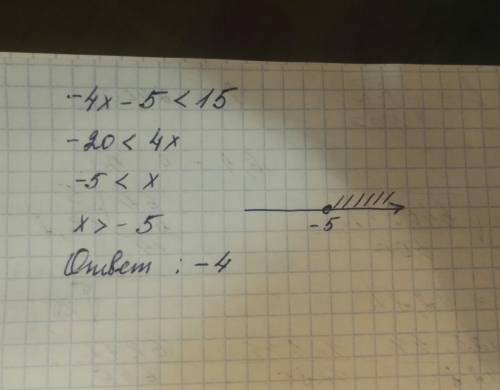 -4x - 5 < 15
-20 < 4x
-5 < x
x > - 5
-5
Ответ : -4